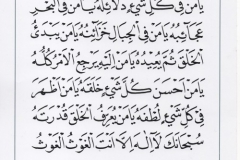 يَامَنْ فِي كُلِّ شَيْءٍ دَلَائِلُهُ يَامَنْ فِي الْبَحْرِ
عَجَائِبُهُ يَامَنْ فِي الْجِبَالِ خَزَائِنُهُ يَامَنْ يَبْدَئُ
الْخَلْقَ ثُمَّ يُعِيدُهُ يَامَنْ اِلَيْهِ يَرْجِعُ الْاَمْرُ كُلُّهُ
يَامَنْ اَحْسَنَ كُلَّ شَيْءٍ خَلْقَهُ يَامَنْ اَظْهَرَ
فِي كُلِّ شَيْءٍ لُطْفَهُ يَامَنْ يُعَرِّفُ الْخَلْقَ قُدْرَتَهُ
سُبْحَانَكَ لَا اِلٰهَ اِلَّا اَنْتَ الْغَوْثَ الْغَوْثَ